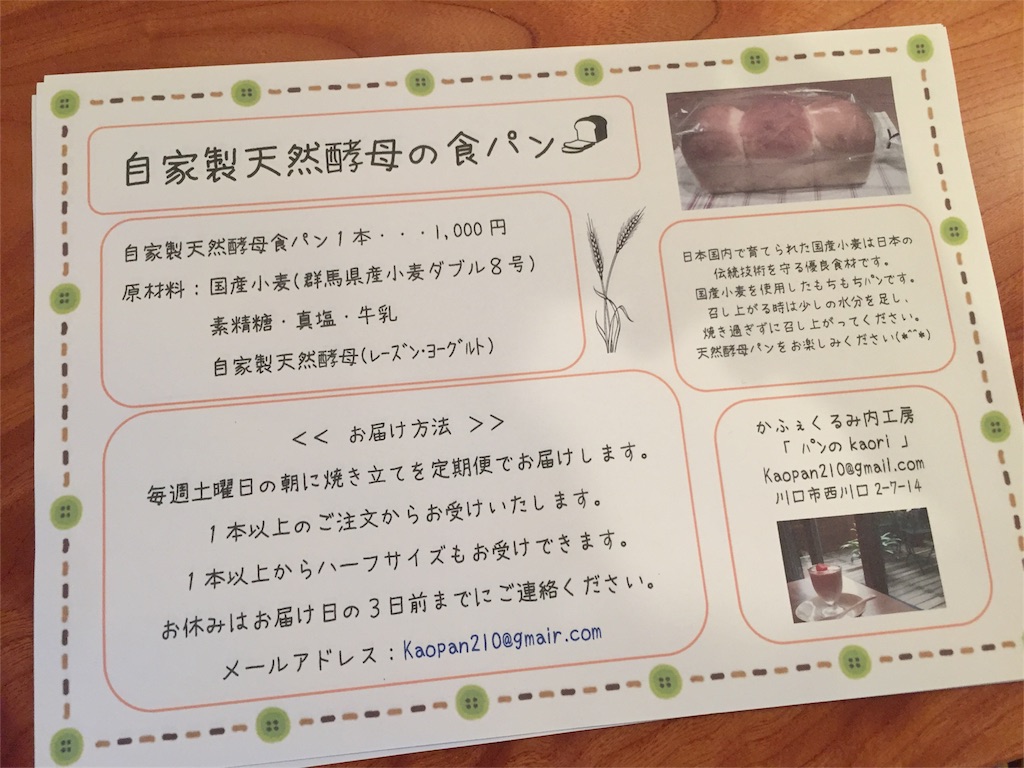 自家製天然酵母の食パン
自家製天然酵母食パン1本・・・1,000円
原材料：国産小麦(群馬県産小麦ダブル8号)
素精糖・真塩・牛乳
自家製天然酵母(ﾚｰｽﾞﾝ・ﾖｰｸﾞﾙﾄ)
<< お届け方法 >>
毎週土曜日の朝に焼き立てを定期便でお届けします。
1本以上のご注文からお受けいたします。
1本以上からハーフサイズもお受けできます。
お休みはお届け日の3日前までにご連絡ください。
メールアドレス：Kaopan210@gmair.com
日本国内で育てられた国産小麦は日本の
伝統技術を守る優良食材です。
国産小麦を使用したもちもちﾊﾟﾝです。
召し上がる時は少しの水分を足し、
焼き過ぎずに召し上がってください。
天然酵母パンをお楽しみください(*^^*)
かふぇくるみ内工房
「 ﾊﾟﾝの kaori 」
Kaopan210@gmail.com
川口市西川口 2-7-14